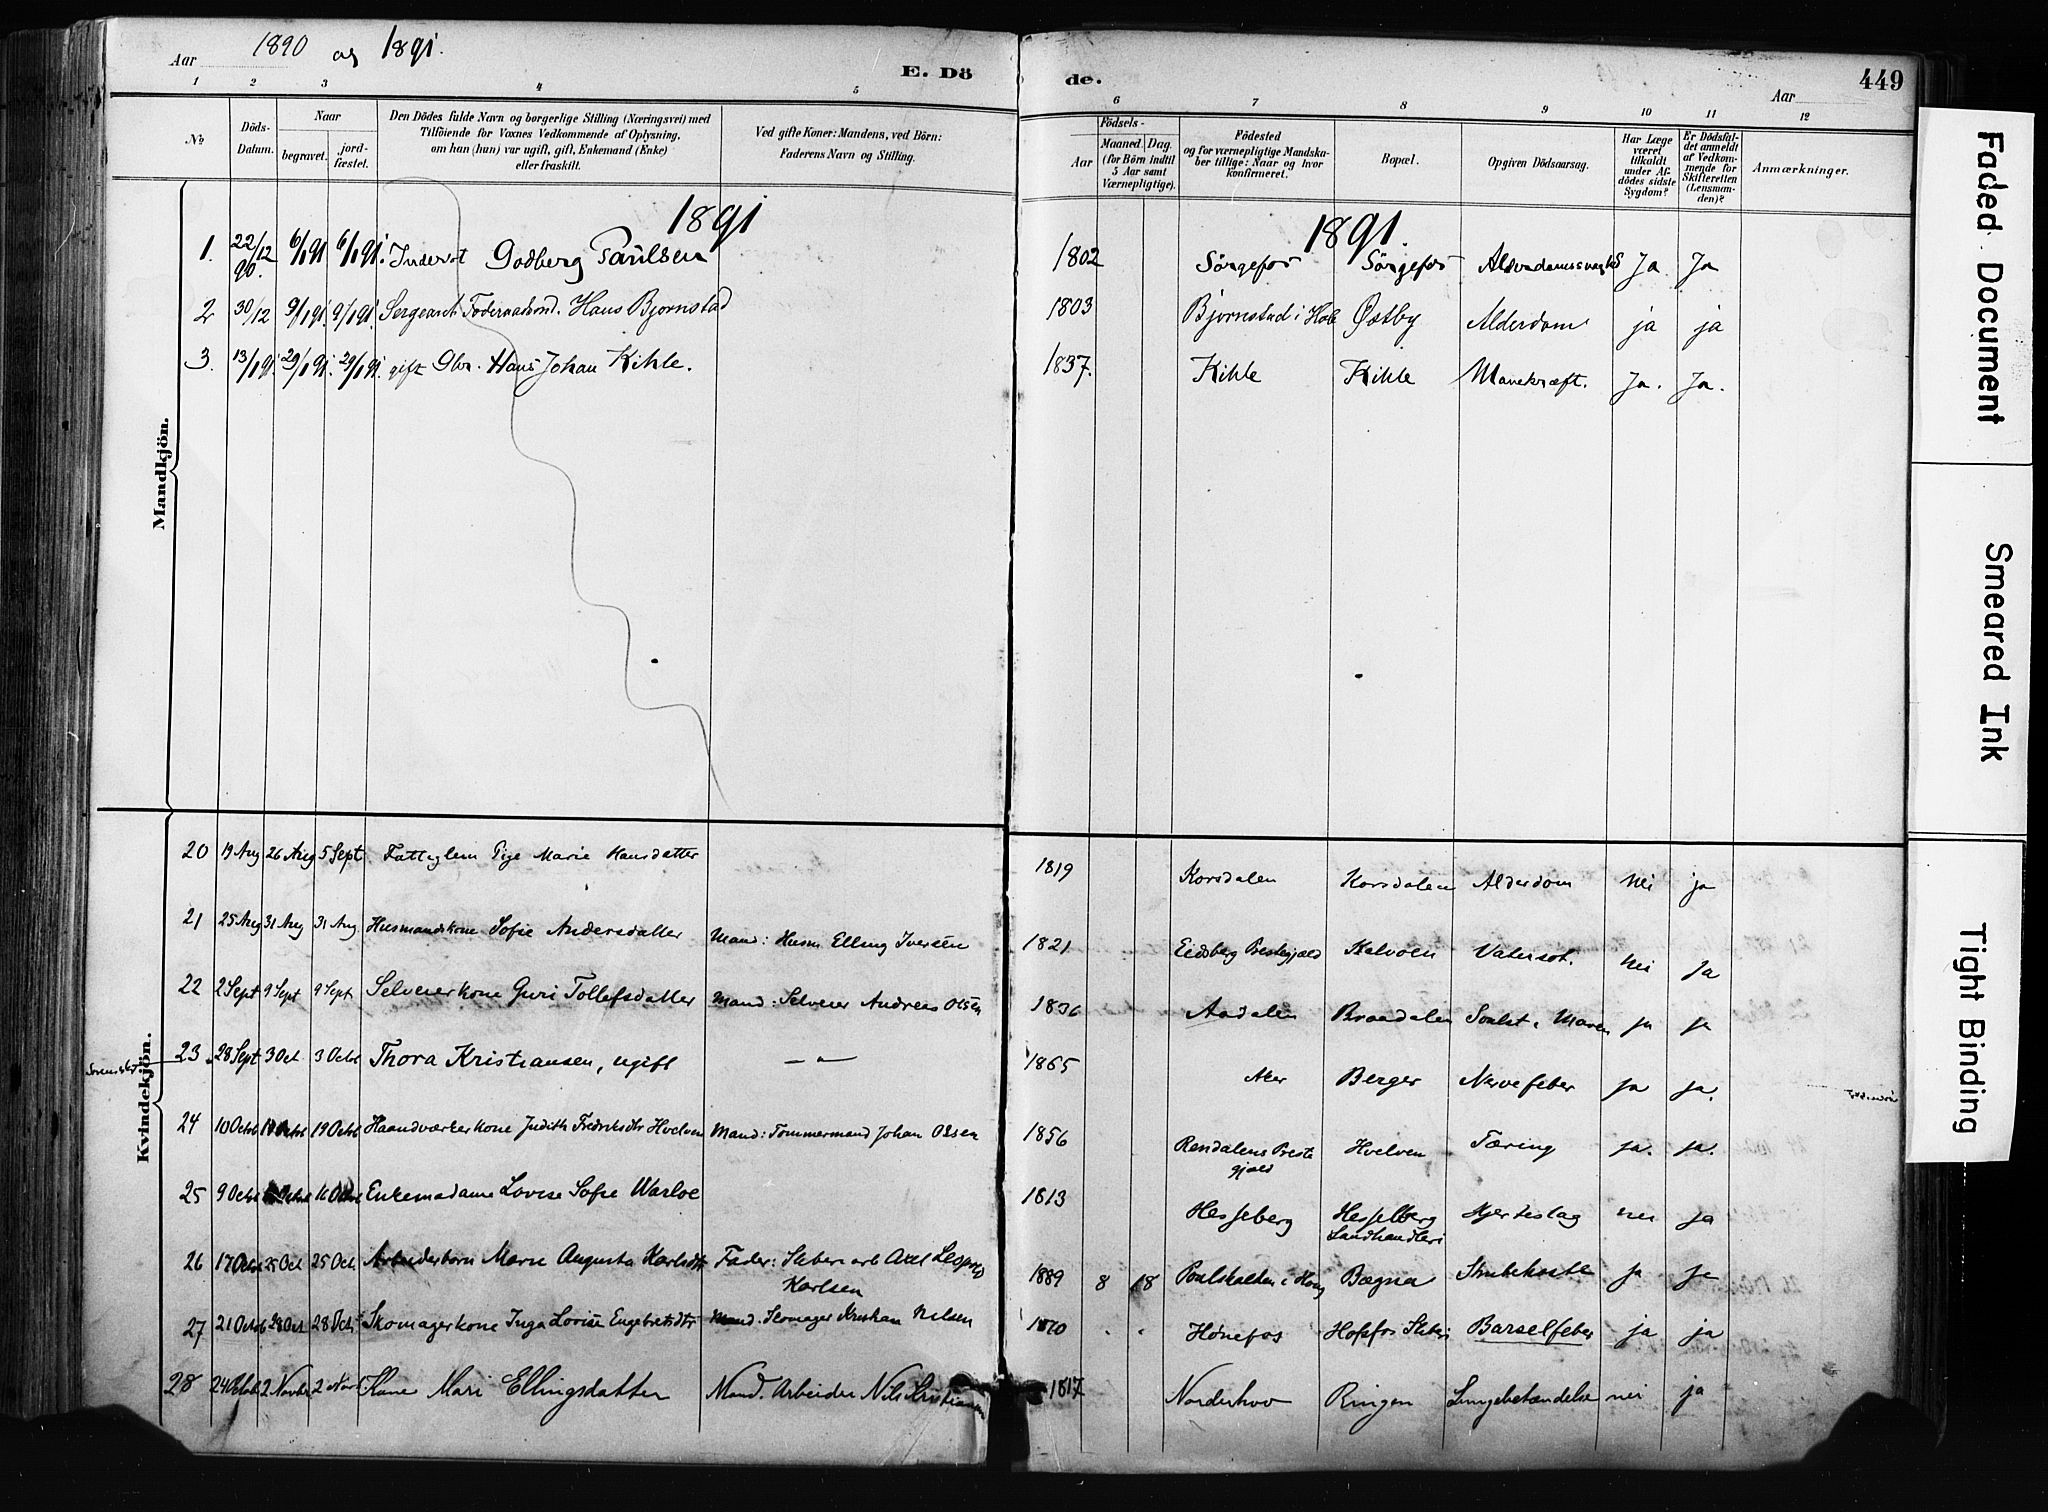 Aar 1890 og 1891.
E. Döde.
449
Aar
1 2 3 4 5 6 7 8 9 10 11 12
No
Döds-Datum.
Naar
begravet.
jordfæstet.
Den Dödes fulde Navn og borgerlige Stilling (Næringsvei) med
Tilföiende for Voxnes Vedkommende af Oplysning,
om han (hun) var ugift, gift, Enkemand (Enke)
eller fraskilt.
Ved gifte Koner: Mandens, ved Börn:
Faderens Navn og Stilling.
Födsels-
Aar
Maaned. Dag.
(for Börn indtil
5 Aar samt
Værnepligtige).
Födested
og for værnepligtige Mandskaber
tillige: Naar og hvor
konfirmeret.
Bopæl.
Opgiven Dödsaarsag.
Har Læge
været
tilkaldt
under Afdödes
sidste
Sygdom?
Er Dödsfaldet
anmeldt
af Vedkommende
for
Skifteretten
(Lensmanden)?
Anmærkninger.
Mandkjön.
1891 1891.
1. 22/12 90. 6/1 91 6/1 91. Inderst Godberg Paulsen 1802 Sørgefos Sørgefos Ja Ja
2 30/12 9/1 91. 9/1 91. Sergeant Hans Bjørnstad 1803 Bjørnstad i Hole Østby Alderdom ja ja
3. 13/1 91. 29/1 91. 29/1 91. gift Gbr. Hans Johan Kihle. 1837. Kihle Kihle Mavekræft. Ja. Ja.
Kvindekjön.
20 19 Aug 26 Aug 5 Sept Fattiglem Pige Marie Hansdatter 1819 Korsdalen Korsdalen Alderdom nei ja
21 25 Aug 31 Aug 31 Aug. Husmandskone Sofie Andersdatter Mand: Husm Elling Iversen 1821 Eidsberg Prestegjæld Kalvøen Vatersot. nei ja
22 2 Sept 9 Sept 9 Sept Selveierkone Guri Tollefsdatter Mand: Selveier Andreas Olsen 1836 Aadalen Braadalen i Maven ja ja
23 28 Sept 3 Oct 3 Octb Thora Kristiansen, ugift — " — 1865 Aker Berger Nervefeber ja ja.
24 10 Octob 19 Octob 19 Octob Haandværkerkone Judith Fredriksdtr Hvelven Mand: Tømmermand Johan Olsen 1856 Rendalens Prestegjæld Hvelven Tæring ja. ja.
25 9 Octob 16 Octob Enkemadame Lovise Sofie Warloe 1813 Hesselberg Hesselberg Landhandleri Hjerteslag nei ja
26 17 Octob 25 Oct 25 Oct. Arbeiderbarn Marie Augusta Karlsdtr Fader: Sliberiarb Axel Leopold
Karlsen 1889 8 18 i Haug Bægna Strubehoste ja ja
27 21 Octob 28 Oct 28 Oct. Skomagerkone Inga Lovise Engebretsdtr Mand: Skomager Kristian Nilsen 1870 " " Hønefos Hofsfos Sliberi Barselfeber ja ja
28 24 Octob 2 Novbr 2 Novb Kone Mari Ellingsdatter Mand. Arbeider Nils Kristiansen 1817 Norderhov Ringen Lungebetændelse nei ja
Faded Document
Smeared Ink
Tight Binding